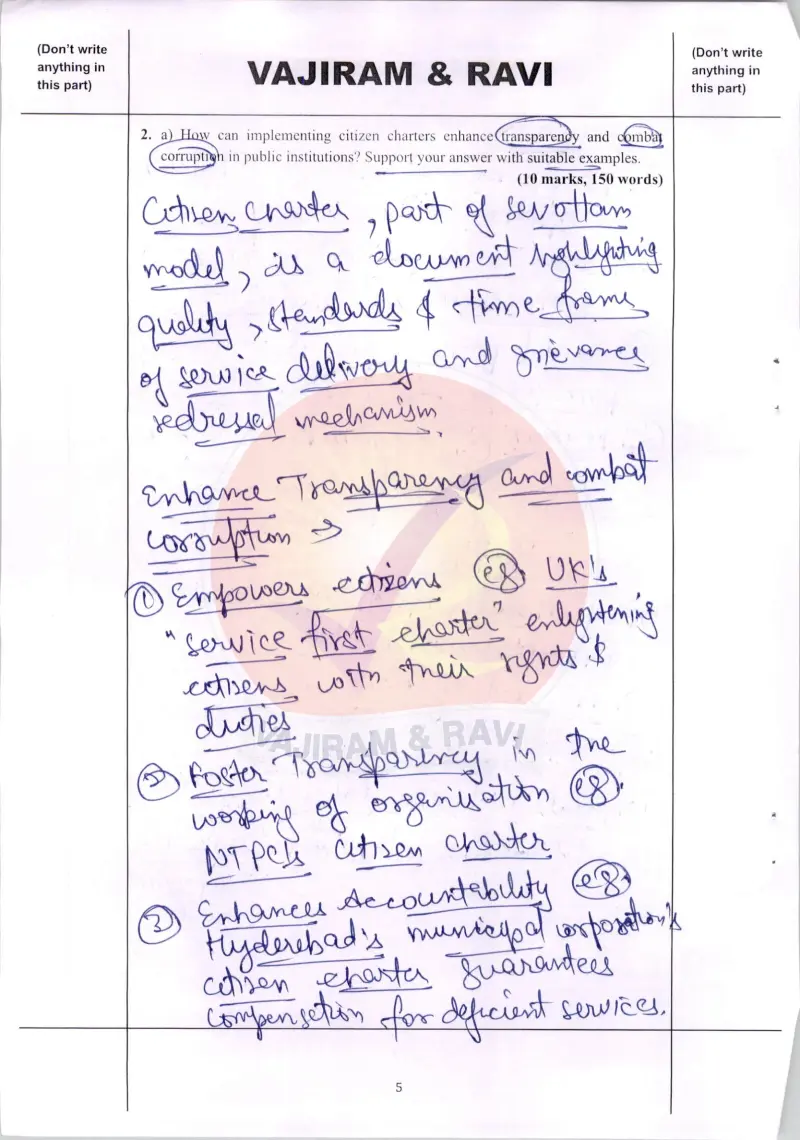 (Don't write
anything in
this part)
VAJIRAM & RAVI
(Don't write
anything in
this part)
2. a) How can implementing citizen charters enhance transparency and combat
corruption in public institutions? Support your answer with suitable examples.
(10 marks, 150 words)
Citizen charter, part of sevottam
model, is a document highlighting
quality, standards & time frame
of service delivery and grievance
redressal mechanism.
Enhance Transparency and combat
corruption →
① Empowers citizens eg. UK's
"service first charter" enlightening
citizens with their rights &
duties
VAJIRAM & RAVI
② Foster Transparency in the
working of organisation eg.
NTPC's citizen charter
③ Enhances Accountability eg.
Hyderebad's municipal corporation's
citizen charter guarantees
compensation for deficient services.
5